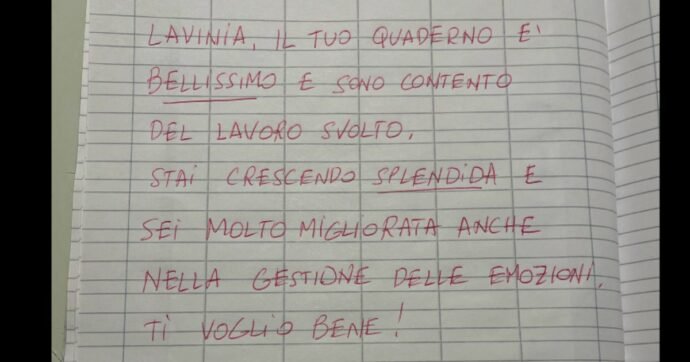 LAVINIA, IL TUO QUADERNO E'
BELLISSIMO E SONO CONTENTO
DEL LAVORO SVOLTO.
STAI CRESCENDO SPLENDIDA E
SEI MOLTO MIGLIORATA ANCHE
NELLA GESTIONE DELLE EMOZIONI.
TI VOGLIO BENE!